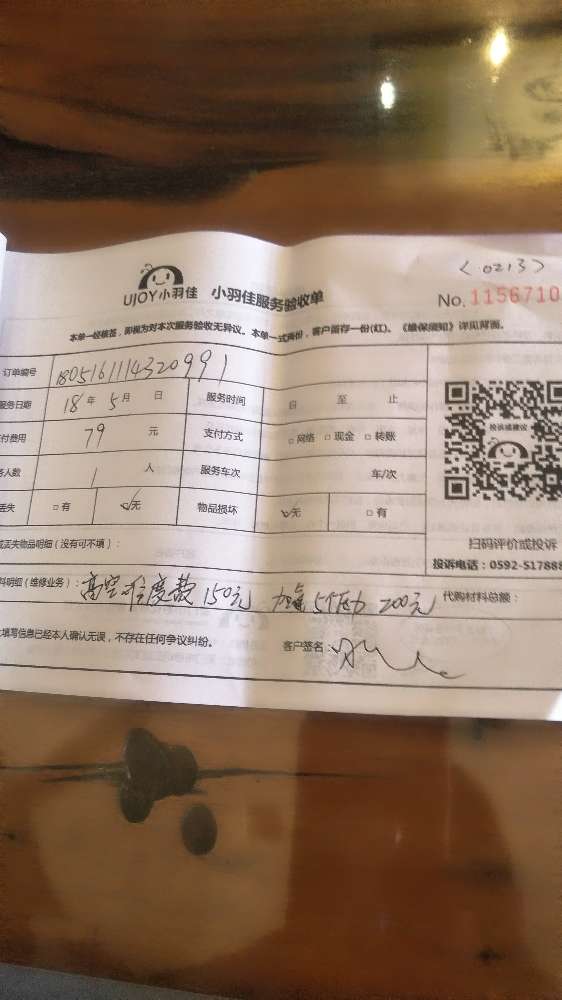 <0213>
UJOY小羽佳 小羽佳服务验收单 No.1156710
本单一经核签，即视为对本次服务验收无异议。本单一式两份，客户留存一份(红)、《维保须知》详见背面。
订单编号 180516111432099 1
服务日期 18年5月 日 服务时间 自 至 止
付费用 79 元 支付方式 □网络 □现金 □转账
务人数 1 人 服务车次 车/次
丢失 □有 ☑无 物品损坏 ☑无 □有
投诉或建议
或丢失物品明细（没有可不填）：
扫码评价或投诉
投诉电话：0592-517888
料明细（维修业务）：高空难度费 150元 加 5个压力 200元 代购材料总额：
填写信息已经本人确认无误，不存在任何争议纠纷。 客户签名：